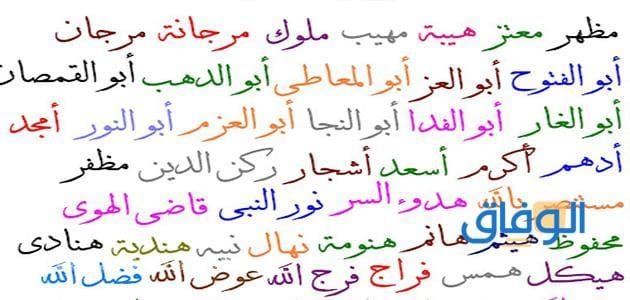 مظهر معتز هيبة مهيب ملوك مرجانة مرجان
أبو الفتوح أبو العز أبو المعاطى أبو الدهب أبو القمصان
أبو الغار أبو الفدا أبو النجا أبو العزم أبو النور أمجد
أدهم أكرم أسعد أشجار ركن الدين مظفر
مستنصر بالله هدوء السر نور النبى قاضى الهوى
الوفاق
محفوظ هيثم هانم هنومة نهال نبيه هندية هنادى
هيكل همس فراج فرج الله عوض الله فضل الله